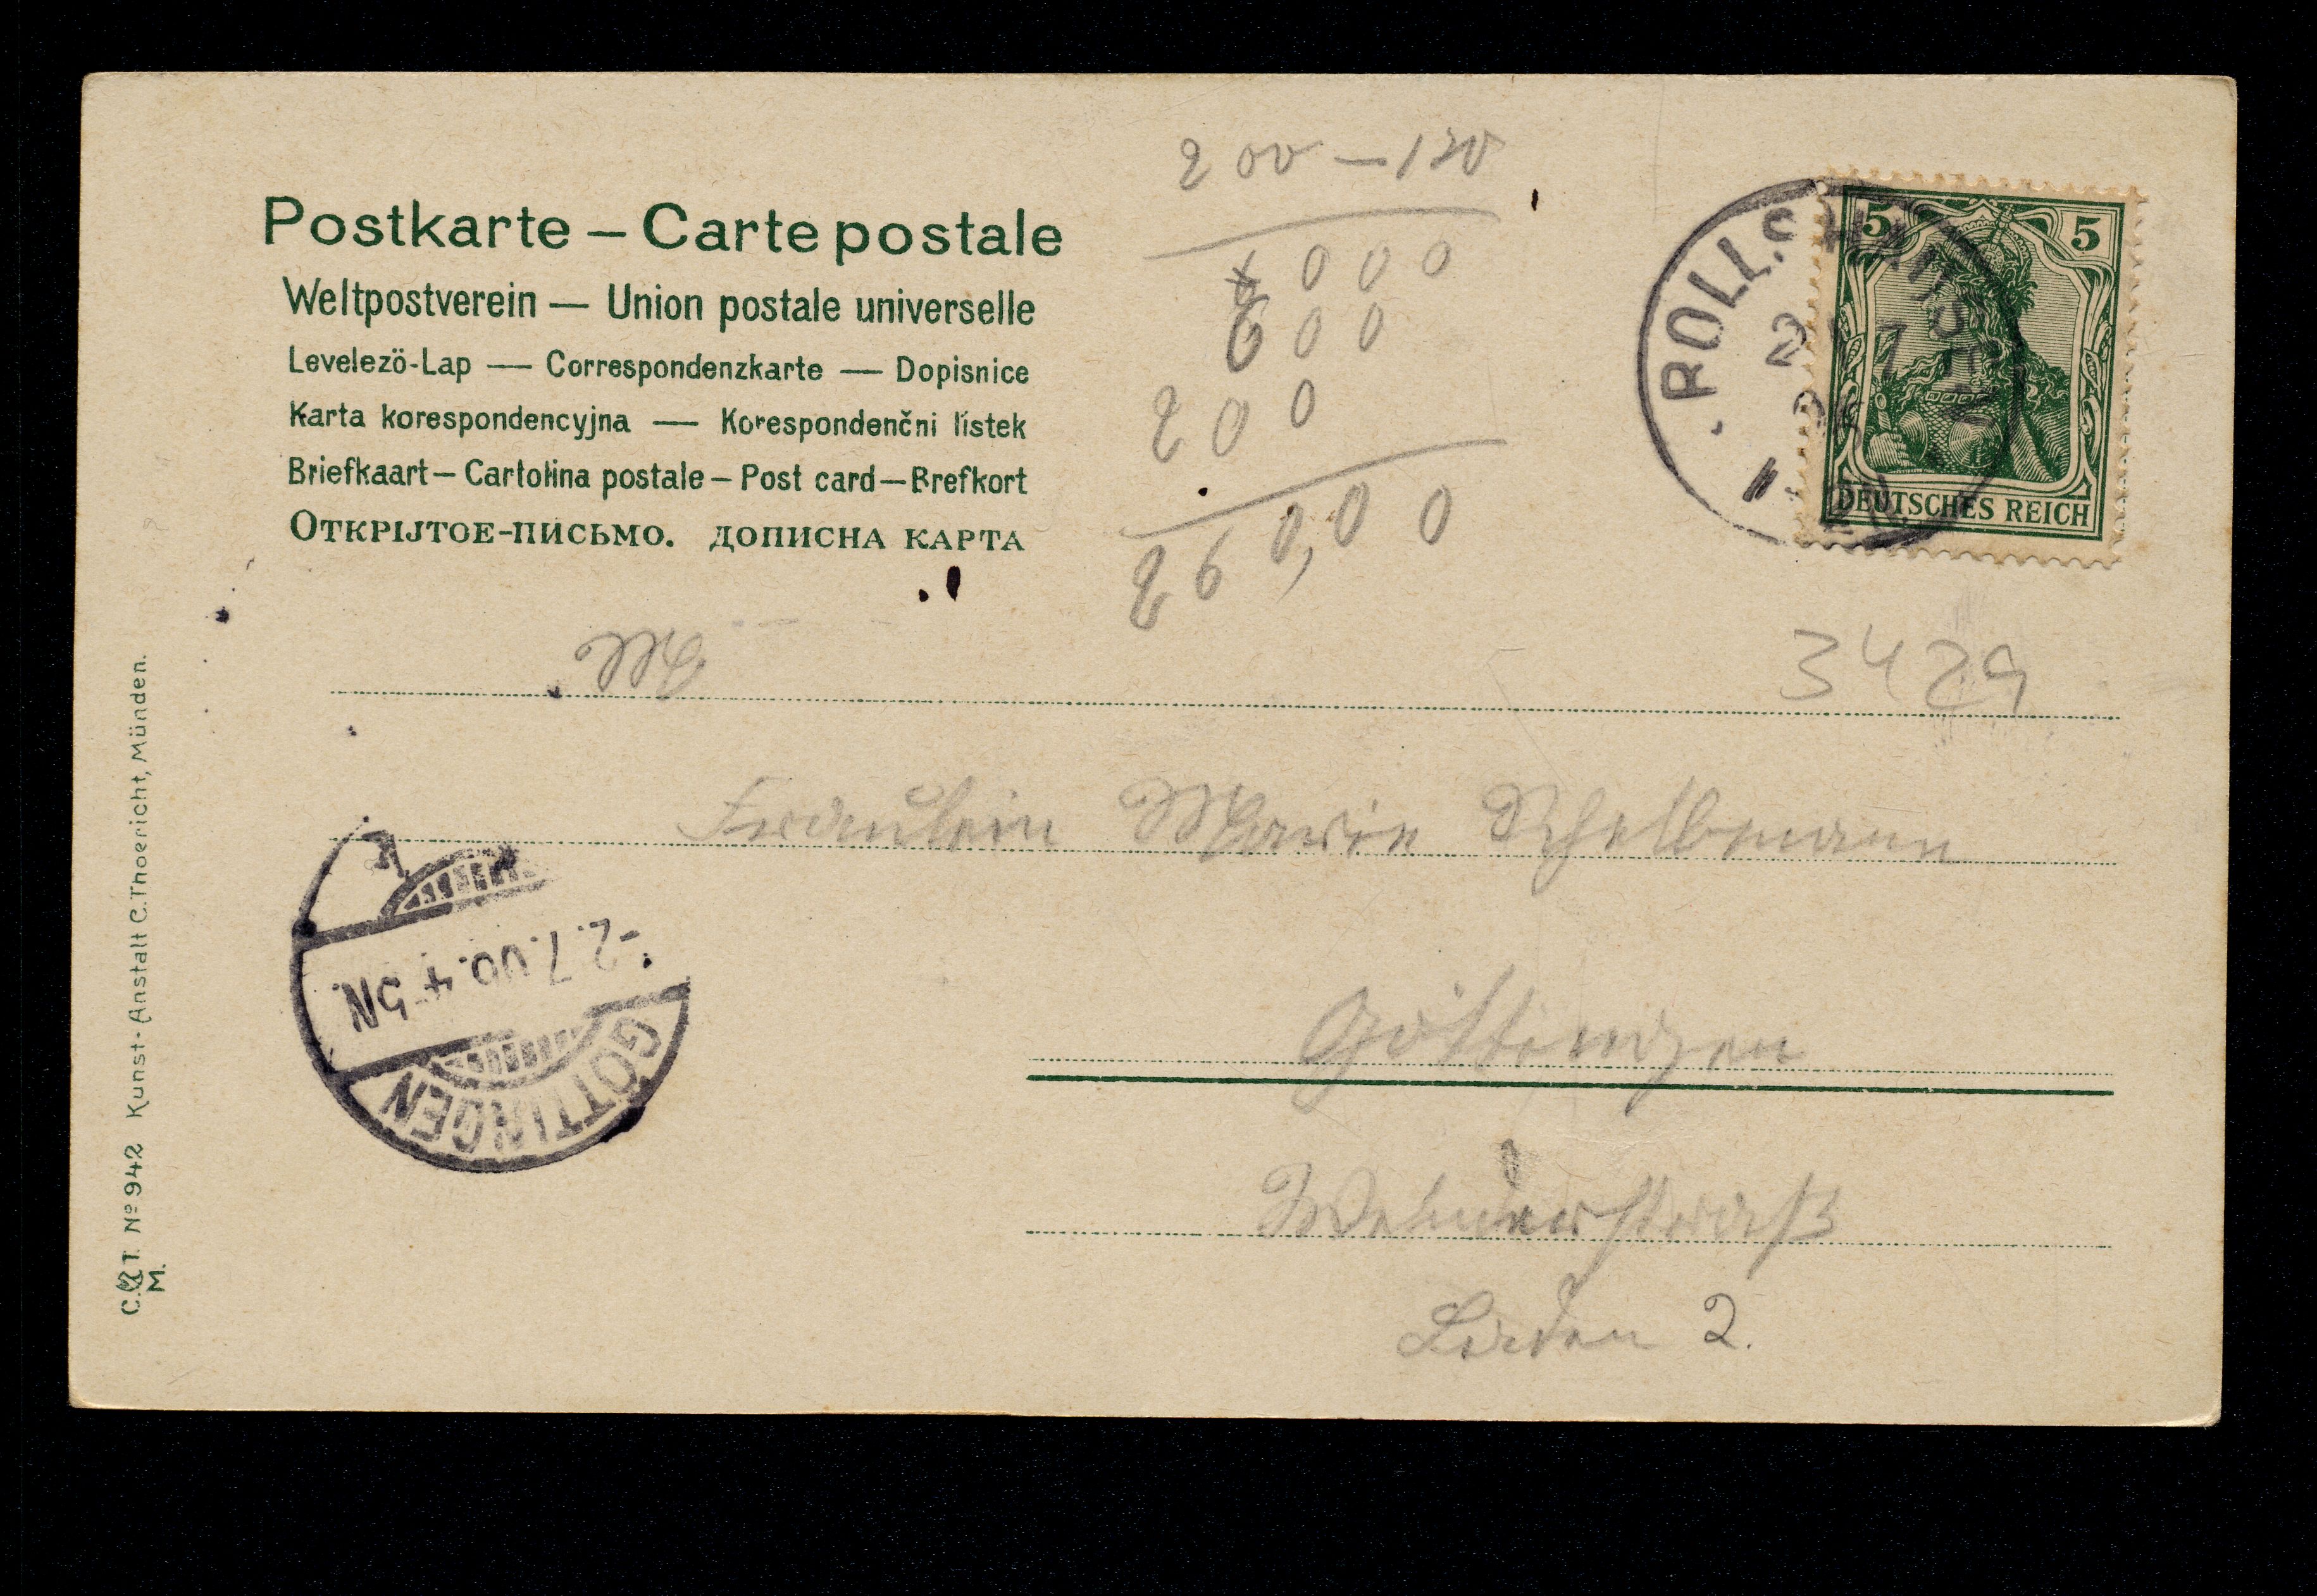 200 — 130
Postkarte – Carte postale
Weltpostverein — Union postale universelle
Levelezö-Lap — Correspondenzkarte — Dopisnice
Karta korespondencyjna — Korespondenčni listek
Briefkaart – Cartolina postale – Post card – Brefkort
Открıјтое-письмо. дописна карта
000
600
200
260,00
5 5
DEUTSCHES REICH
2 7
3429
Fräulein Marie
Göttingen
Weenderstraß
Laden 2.
-2.7.06.4-5N.
GÖTTINGEN
C.T.M. No 942 Kunst-Anstalt C. Thoericht, Münden.